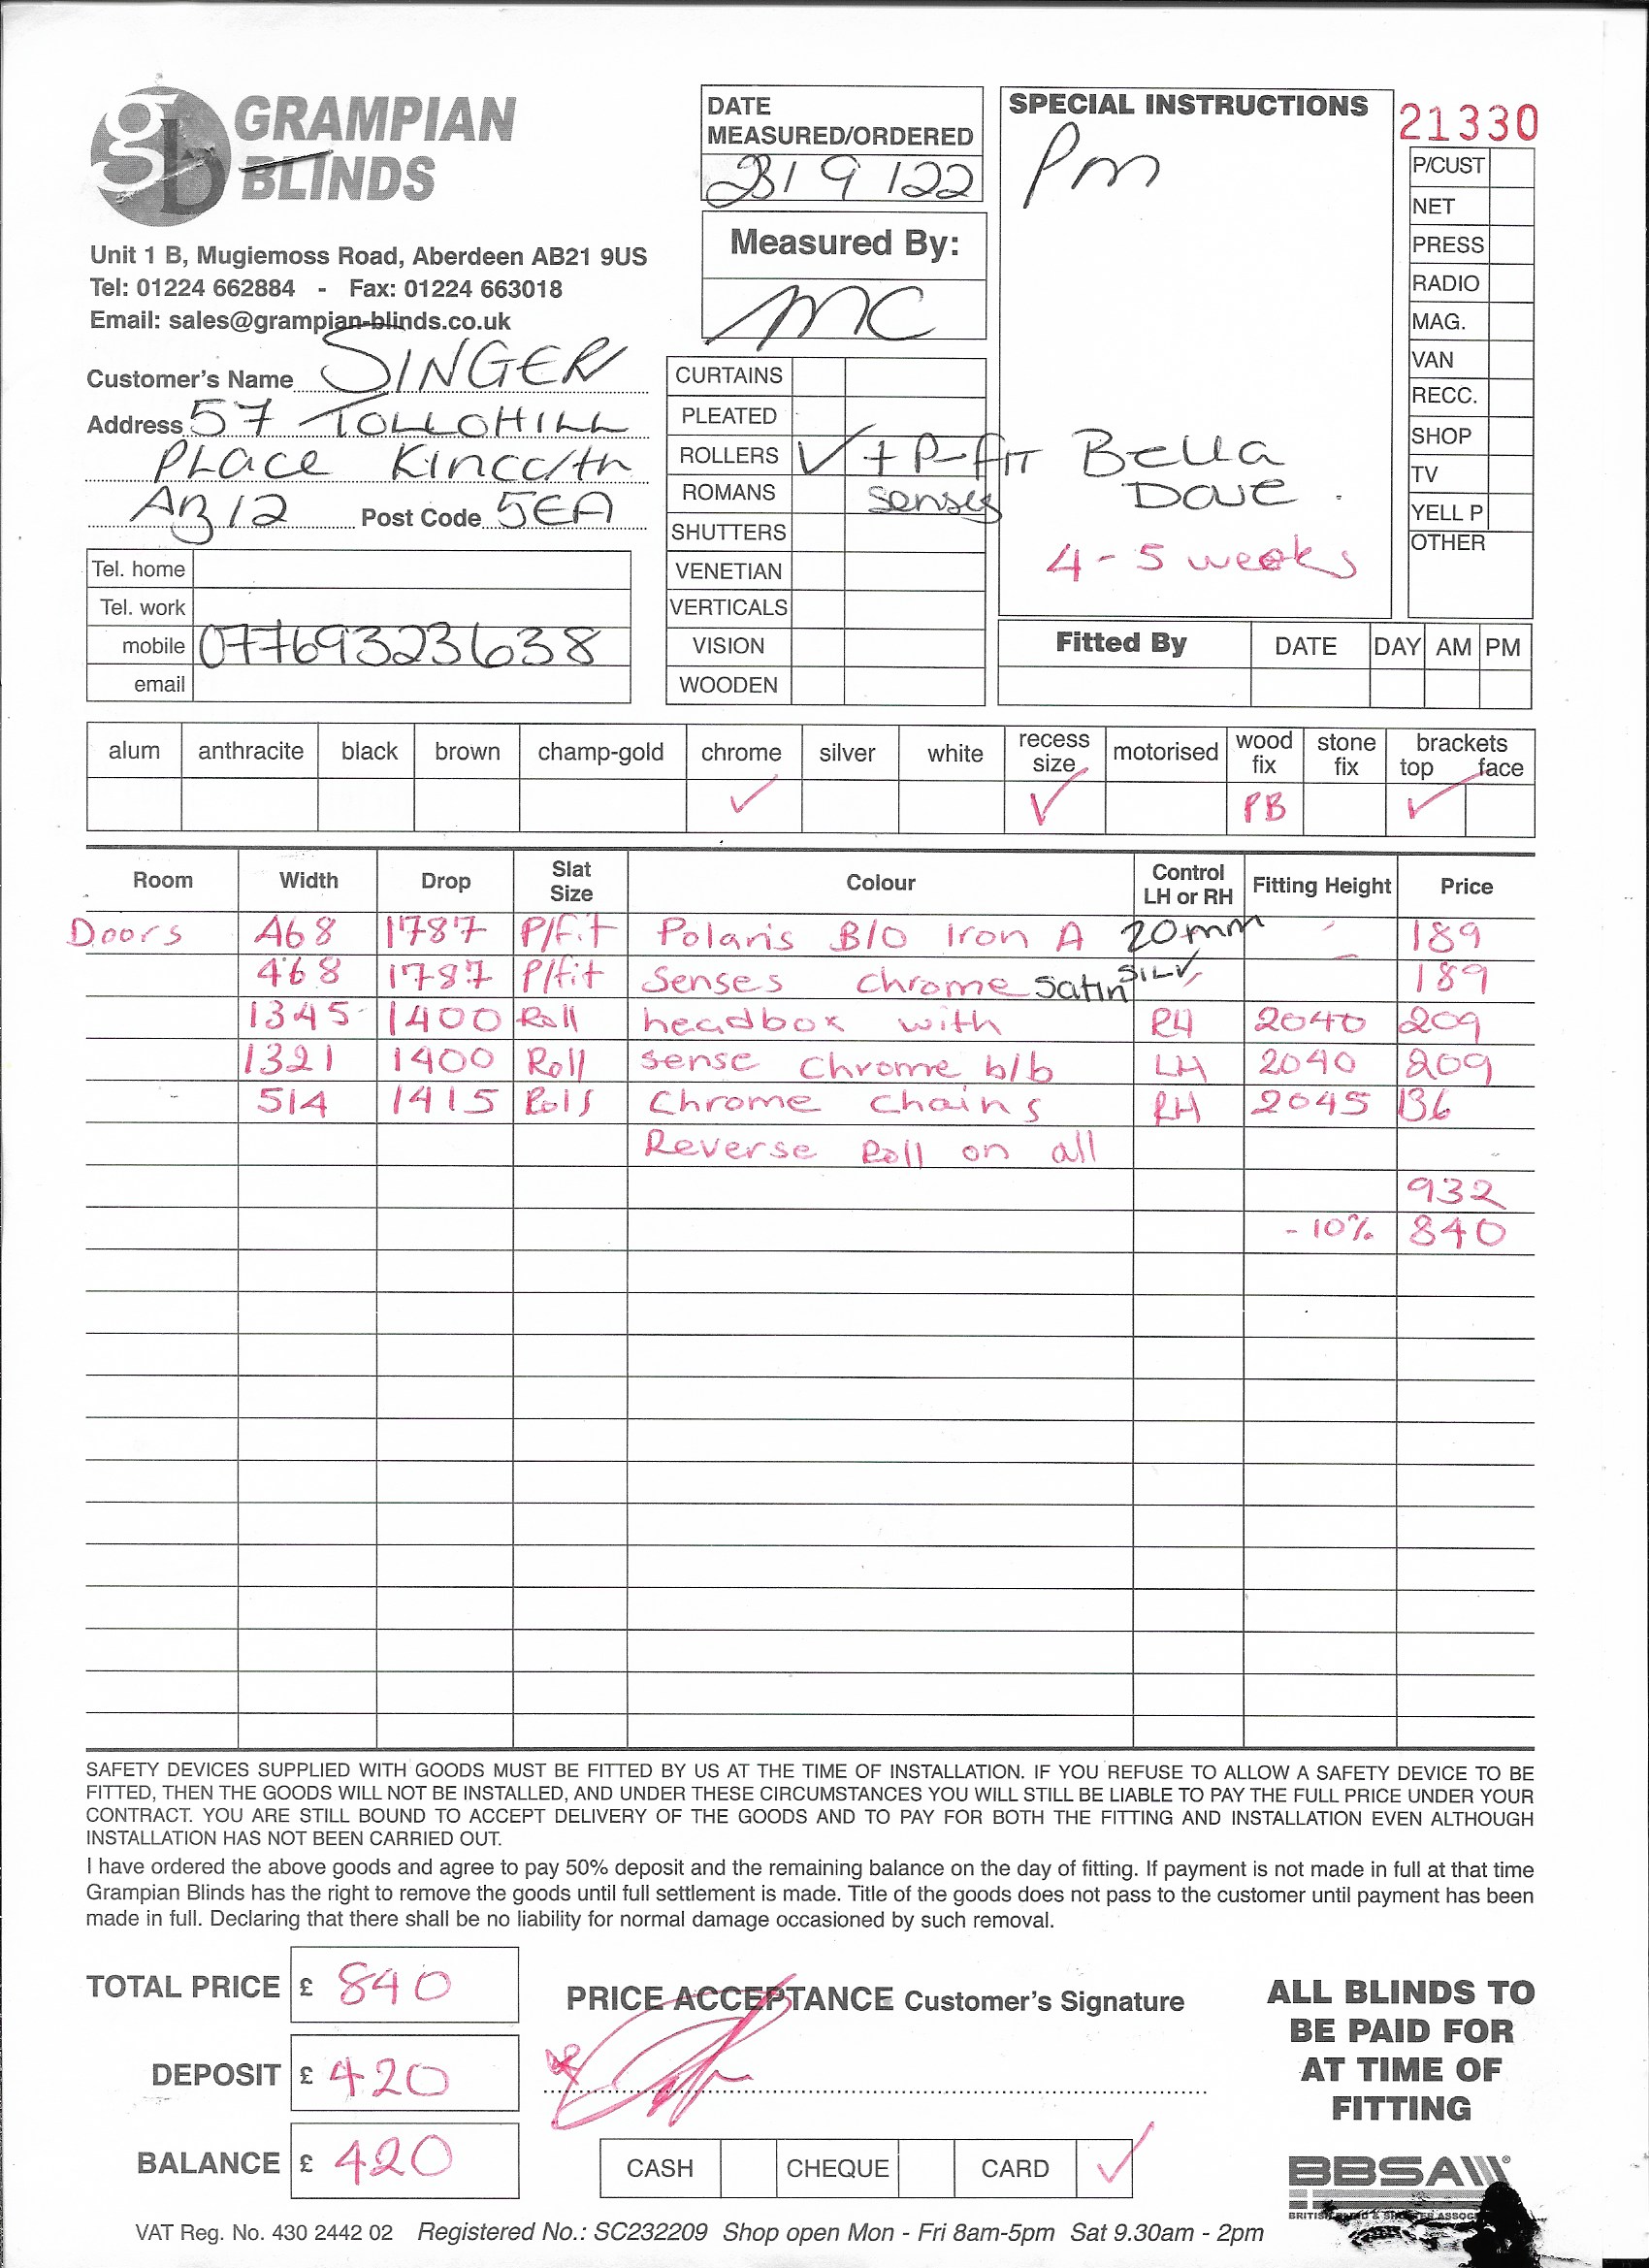 GRAMPIAN
BLINDS
Unit 1 B, Mugiemoss Road, Aberdeen AB21 9US
Tel: 01224 662884 - Fax: 01224 663018
Email: sales@grampian-blinds.co.uk
Customer's Name SINGER
Address 57 TOLLOHILL
PLACE Kincc/th
AB12 Post Code 5EA
Tel. home
Tel. work
mobile 07769323638
email
DATE
MEASURED/ORDERED
23/9/22
Measured By:
MC
CURTAINS
PLEATED
ROLLERS ✓ + P-FIT
ROMANS Senses
SHUTTERS
VENETIAN
VERTICALS
VISION
WOODEN
SPECIAL INSTRUCTIONS
Pm
Bella
Dove
4-5 weeks
21330
P/CUST
NET
PRESS
RADIO
MAG.
VAN
RECC.
SHOP
TV
YELL P
OTHER
Fitted By DATE DAY AM PM
alum anthracite black brown champ-gold chrome silver white recess size motorised wood fix stone fix brackets top face
✓ ✓ PB ✓
Room Width Drop Slat Size Colour Control LH or RH Fitting Height Price
Doors 468 1787 P/fit Polaris B/O Iron A 20mm 189
468 1787 P/fit Senses chrome Satin SILV 189
1345 1400 Roll headbox with RH 2040 209
1321 1400 Roll sense Chrome b/b LH 2040 209
514 1415 Roll Chrome Chains RH 2045 136
Reverse Roll on all
932
-10% 840
SAFETY DEVICES SUPPLIED WITH GOODS MUST BE FITTED BY US AT THE TIME OF INSTALLATION. IF YOU REFUSE TO ALLOW A SAFETY DEVICE TO BE
FITTED, THEN THE GOODS WILL NOT BE INSTALLED, AND UNDER THESE CIRCUMSTANCES YOU WILL STILL BE LIABLE TO PAY THE FULL PRICE UNDER YOUR
CONTRACT. YOU ARE STILL BOUND TO ACCEPT DELIVERY OF THE GOODS AND TO PAY FOR BOTH THE FITTING AND INSTALLATION EVEN ALTHOUGH
INSTALLATION HAS NOT BEEN CARRIED OUT.
I have ordered the above goods and agree to pay 50% deposit and the remaining balance on the day of fitting. If payment is not made in full at that time
Grampian Blinds has the right to remove the goods until full settlement is made. Title of the goods does not pass to the customer until payment has been
made in full. Declaring that there shall be no liability for normal damage occasioned by such removal.
TOTAL PRICE £ 840
DEPOSIT £ 420
BALANCE £ 420
PRICE ACCEPTANCE Customer's Signature
CASH CHEQUE CARD ✓
ALL BLINDS TO
BE PAID FOR
AT TIME OF
FITTING
BBSA
VAT Reg. No. 430 2442 02 Registered No.: SC232209 Shop open Mon - Fri 8am-5pm Sat 9.30am - 2pm